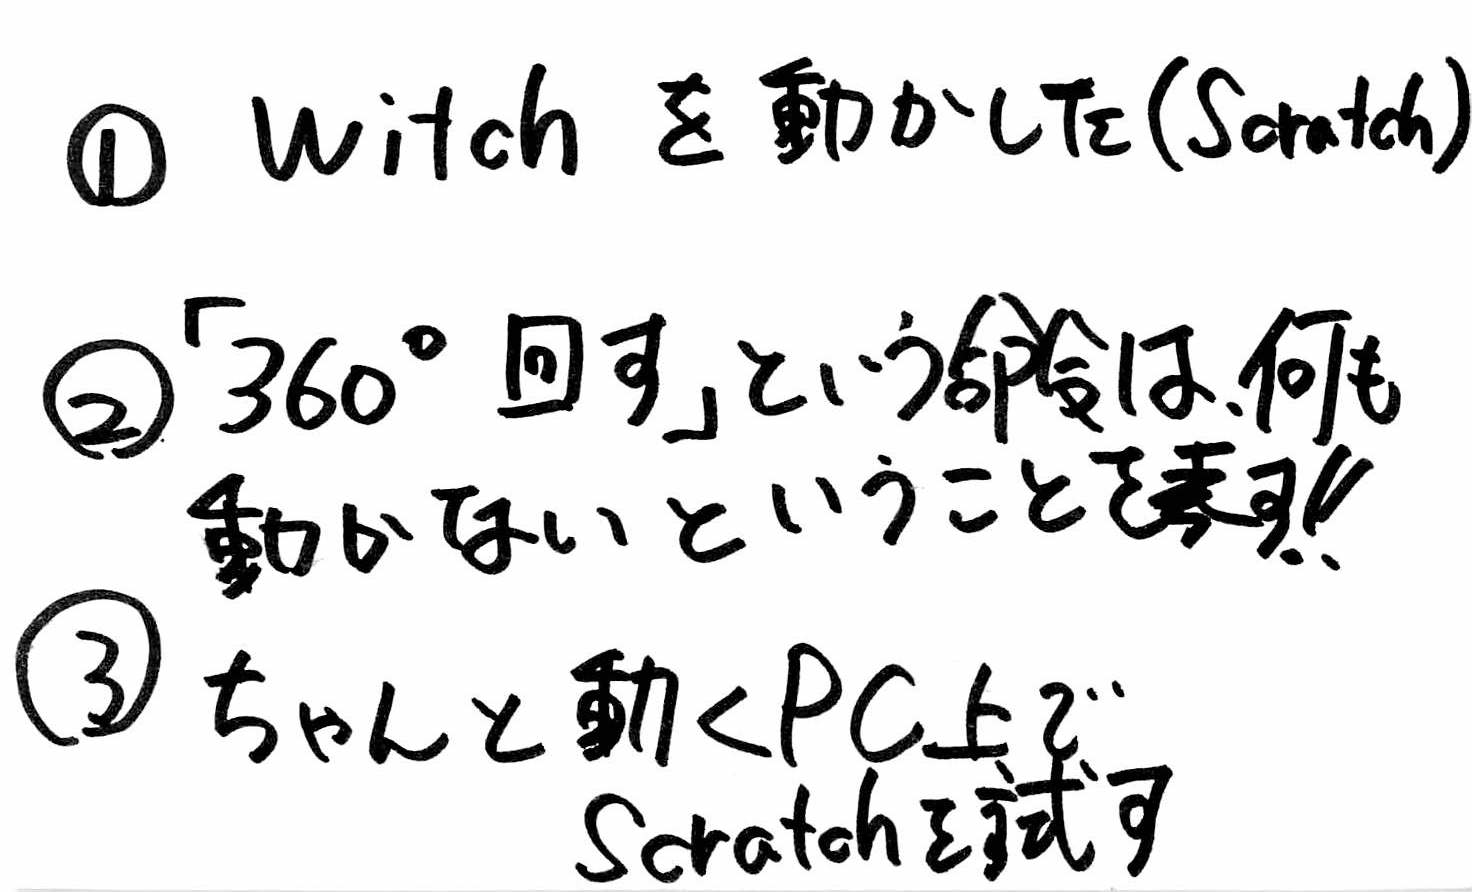 ① Witchを動かした(Scratch)
②「360°回す」という命令は、何も
動かないということを表す!!
③ ちゃんと動くPC上で
Scratchを試す